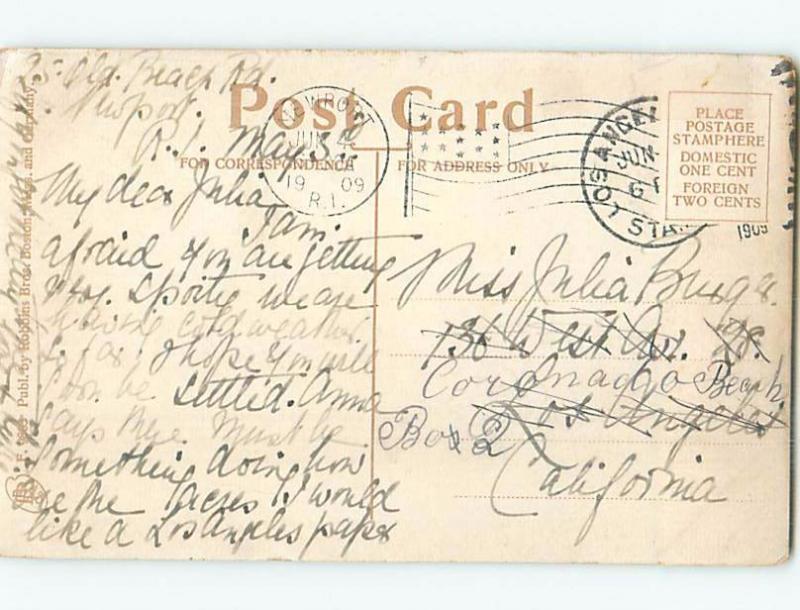 Post Card
FOR CORRESPONDENCE
FOR ADDRESS ONLY
PLACE
POSTAGE
STAMP HERE
DOMESTIC
ONE CENT
FOREIGN
TWO CENTS
NEWPORT
JUN 4
1909
R.I.
LOS ANGELES
JUN
STA.
1909
25 Old Beach Rd.
Newport
R.I. May 3
My dear Julia
I am
afraid you are getting
very sporty we are
having cold weather
so far I hope you will
soon be settled. Anna
says there must be
something doing how
are the races I would
like a Los Angeles paper
Miss Julia Burga
136 West Av. 28
Coronado Beach
Los Angeles
Box 2
California
Publ. by Hopkins Bros. Boston, Mass. and Germany.